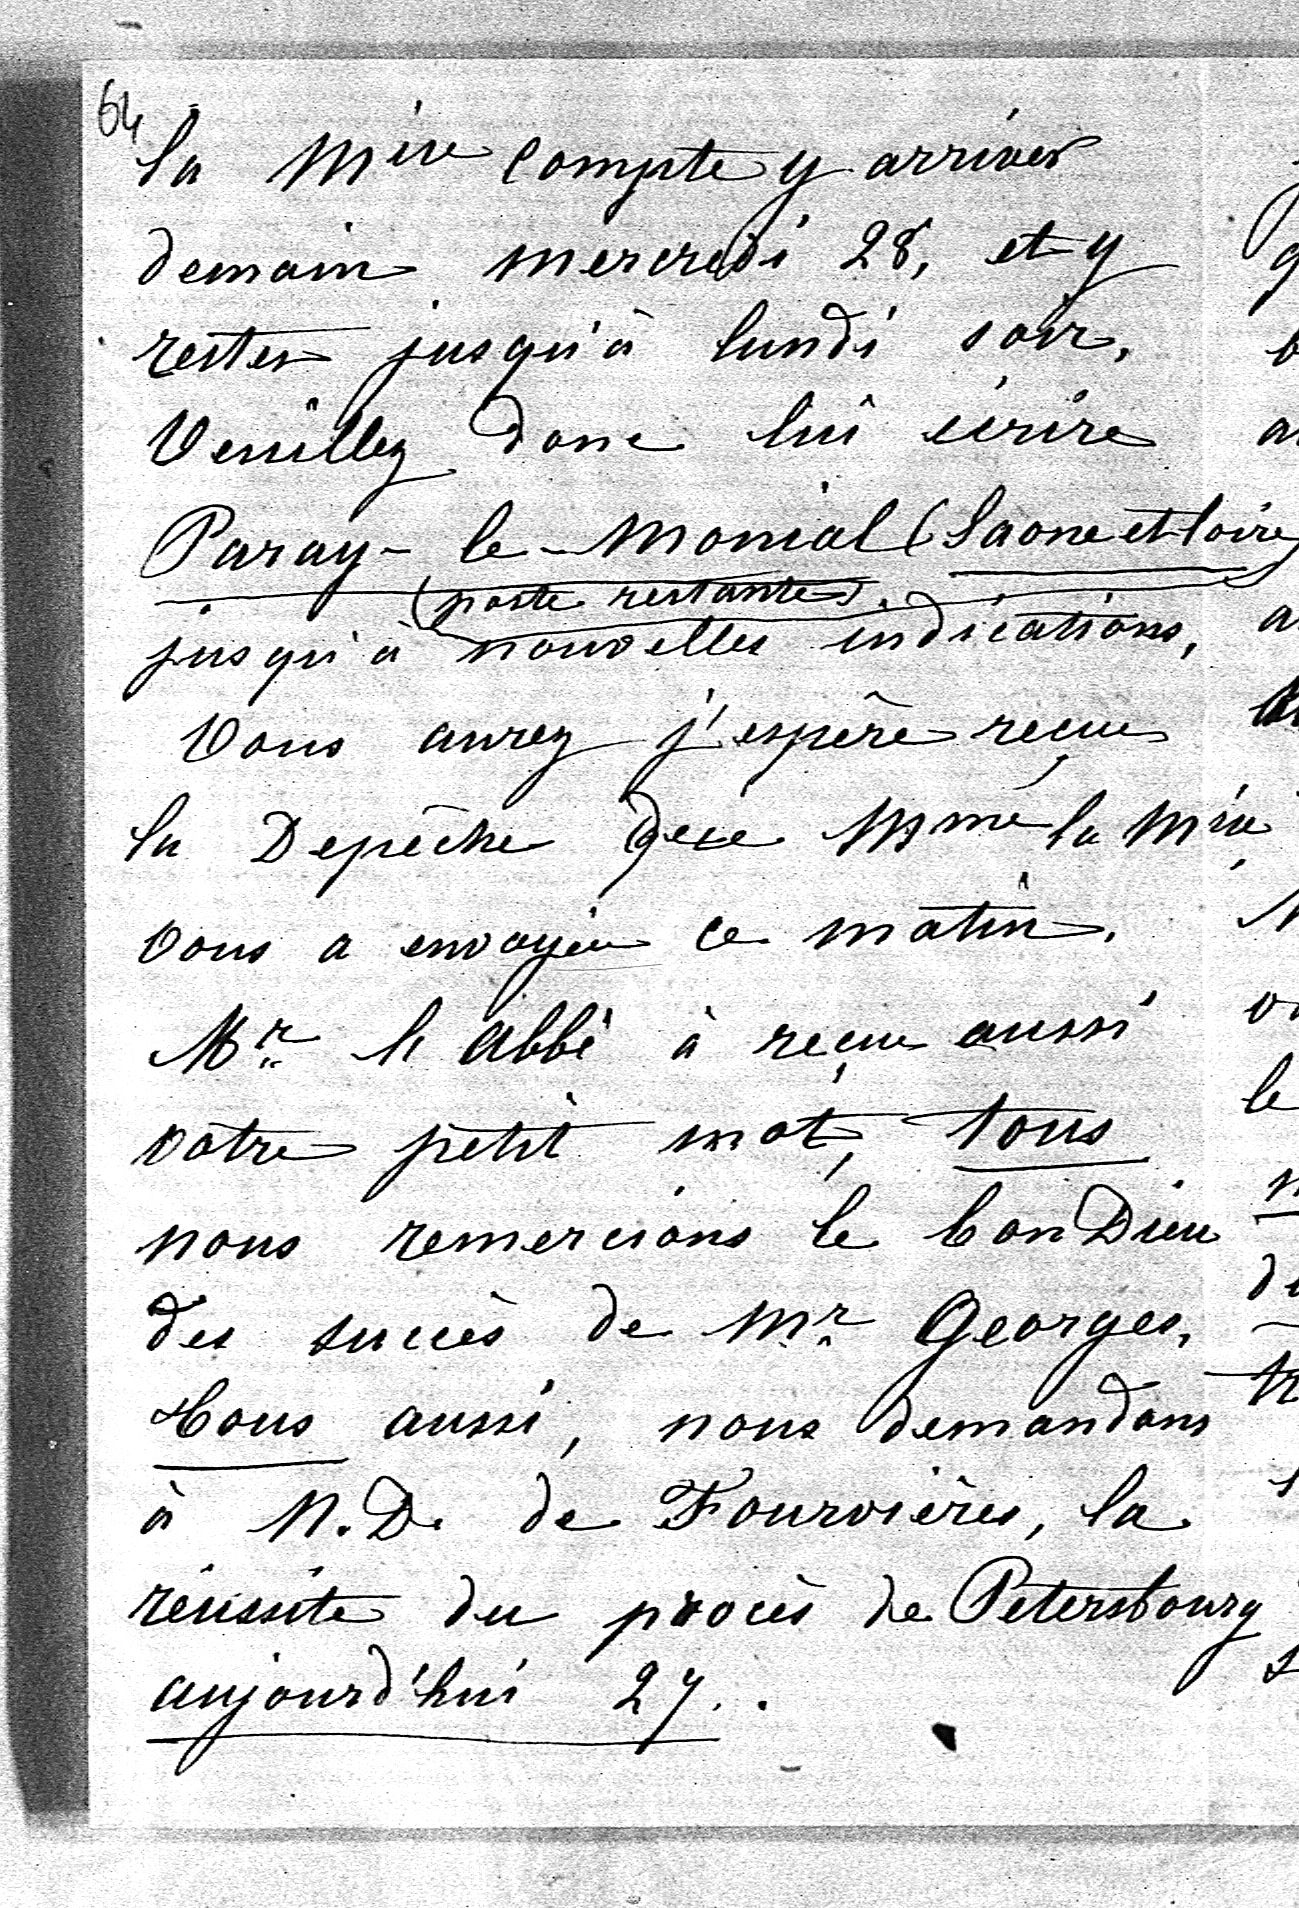 64
la Mère compte y arriver
demain mercredi 28, et y
rester jusqu'à lundi soir,
Veuillez donc lui écrire
Paray-le-Monial (Saone et Loire)
(poste restante).
jusqu'à nouvelles indications,
Vous aurez j'espère reçue
la Depêche que Mme la Mère
vous a envoyée ce matin.
Mr. l'abbé à reçue aussi
votre petit mot, tous
nous remercions le bon Dieu
des succès de Mr Georges,
tous aussi, nous demandons
à N.D. de Fourvières, la
réussite du procès de Petersbourg
aujourd'hui 27..